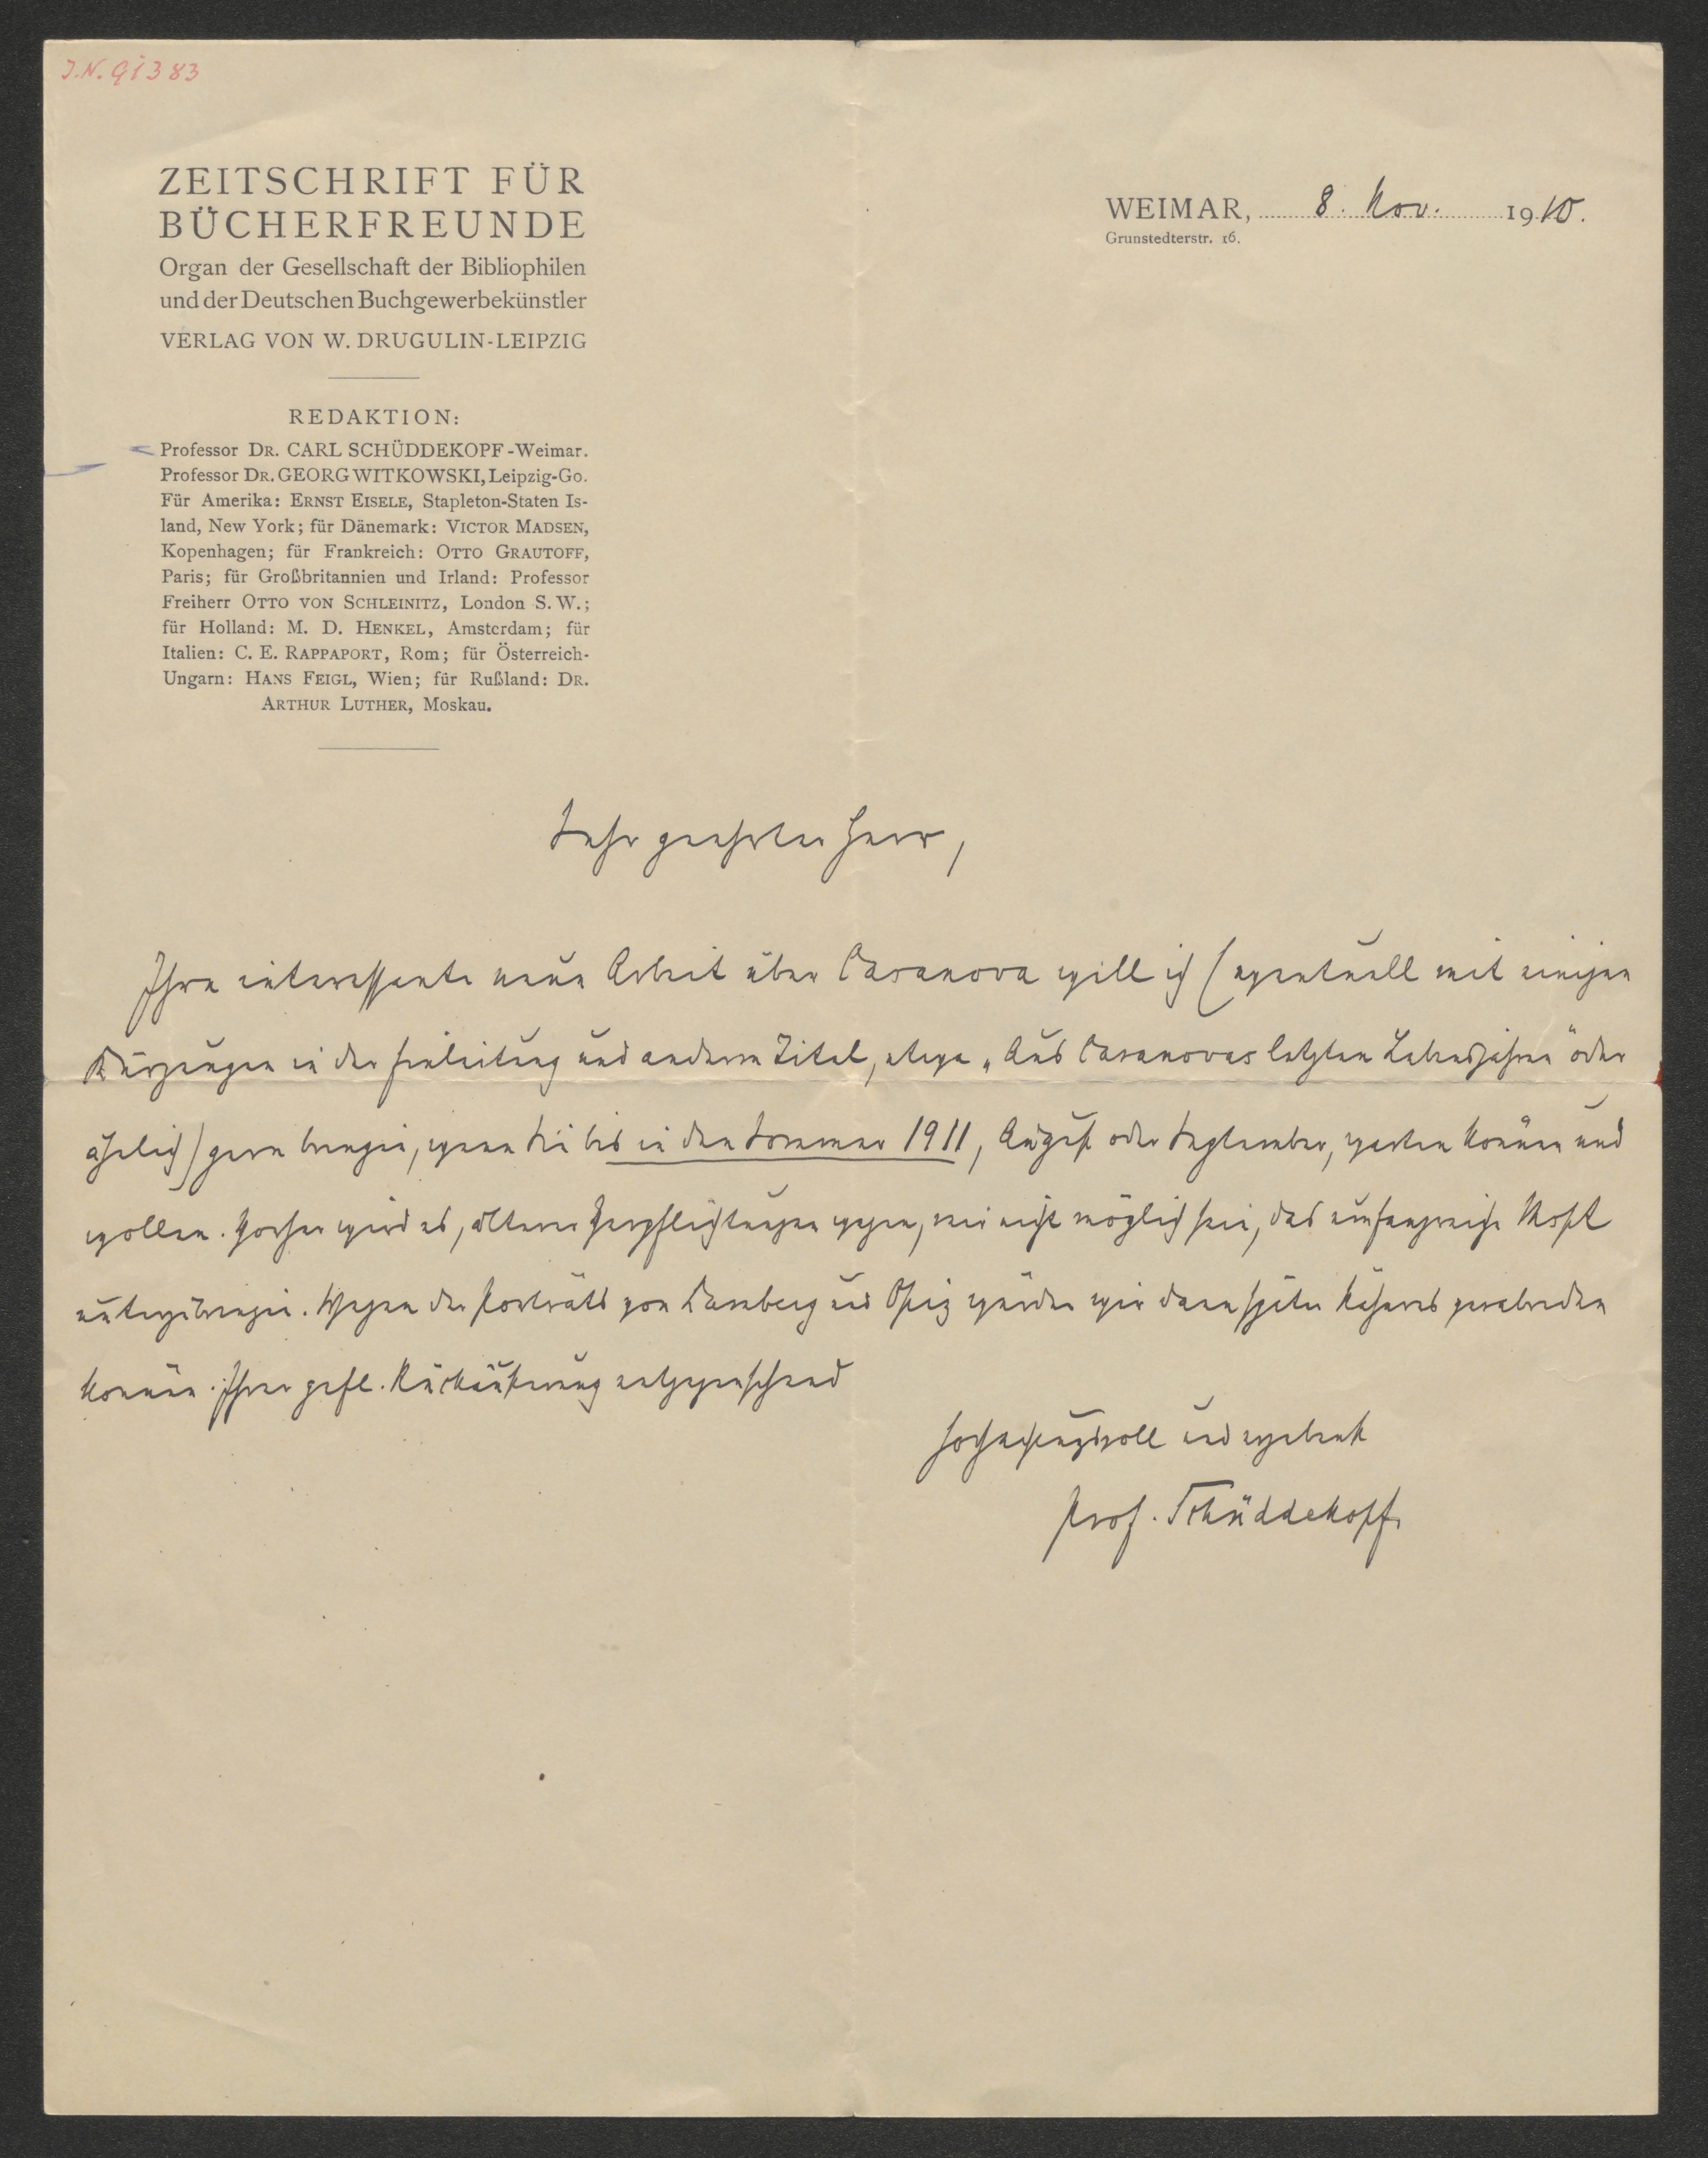 J.N. 91383
ZEITSCHRIFT FÜR
BÜCHERFREUNDE
Organ der Gesellschaft der Bibliophilen
und der Deutschen Buchgewerbekünstler
VERLAG VON W. DRUGULIN-LEIPZIG
REDAKTION:
Professor DR. CARL SCHÜDDEKOPF-Weimar.
Professor DR. GEORG WITKOWSKI, Leipzig-Go.
Für Amerika: ERNST EISELE, Stapleton-Staten Is-
land, New York; für Dänemark: VICTOR MADSEN,
Kopenhagen; für Frankreich: OTTO GRAUTOFF,
Paris; für Großbritannien und Irland: Professor
Freiherr OTTO VON SCHLEINITZ, London S. W.;
für Holland: M. D. HENKEL, Amsterdam; für
Italien: C. E. RAPPAPORT, Rom; für Österreich-
Ungarn: HANS FEIGL, Wien; für Rußland: DR.
ARTHUR LUTHER, Moskau.
WEIMAR, 8. Nov. 1910.
Grunstedterstr. 16.
Sehr geehrter Herr,
Ihre interessante neue Arbeit über Casanova will ich (eventuell mit einigen
Kürzungen in der Einleitung und anderem Titel, etwa „Aus Casanovas letzten Lebensjahren" oder
ähnlich) gern bringen, wenn Sie bis in den Sommer 1911, August oder September, warten können und
wollen. Vorher wird es, älterer Verpflichtungen wegen, mir nicht möglich sein, das umfangreiche Mskt
unterzubringen. Wegen der Porträts von Lamberg und Opiz würden wir dann später Näheres verabreden
können. Ihrer gefl. Rückäußerung entgegensehend
hochachtungsvoll und ergebenst
Prof. Schüddekopf.